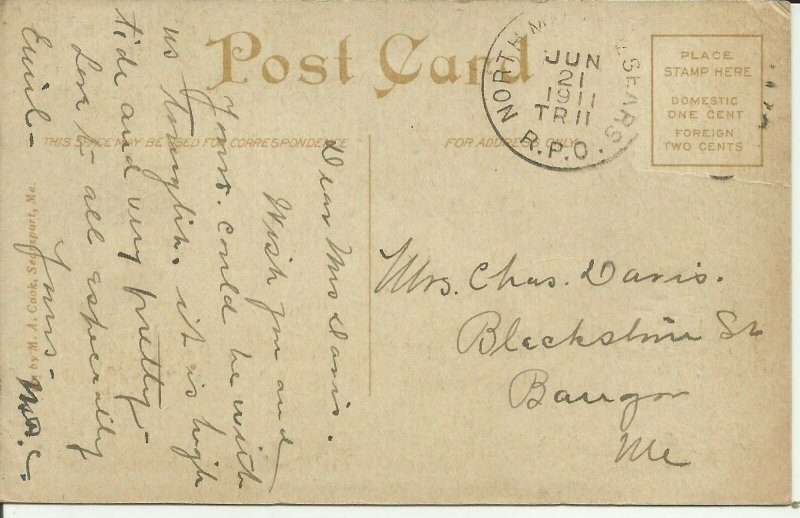 Post Card
THIS SPACE MAY BE USED FOR CORRESPONDENCE
FOR ADDRESS ONLY
NORTH M SEARS
JUN
21
1911
TR 11
R.P.O.
PLACE
STAMP HERE
DOMESTIC
ONE CENT
FOREIGN
TWO CENTS
Dear Mrs Davis.
Wish you and
yours. could be with
us tonight. it is high
tide and very pretty.
Love to all especially
Emil-
Yours-
C.
by M. A. Cook, Searsport, Me.
Mrs. Chas. Davis.
Blackstone St
Bangor
Me